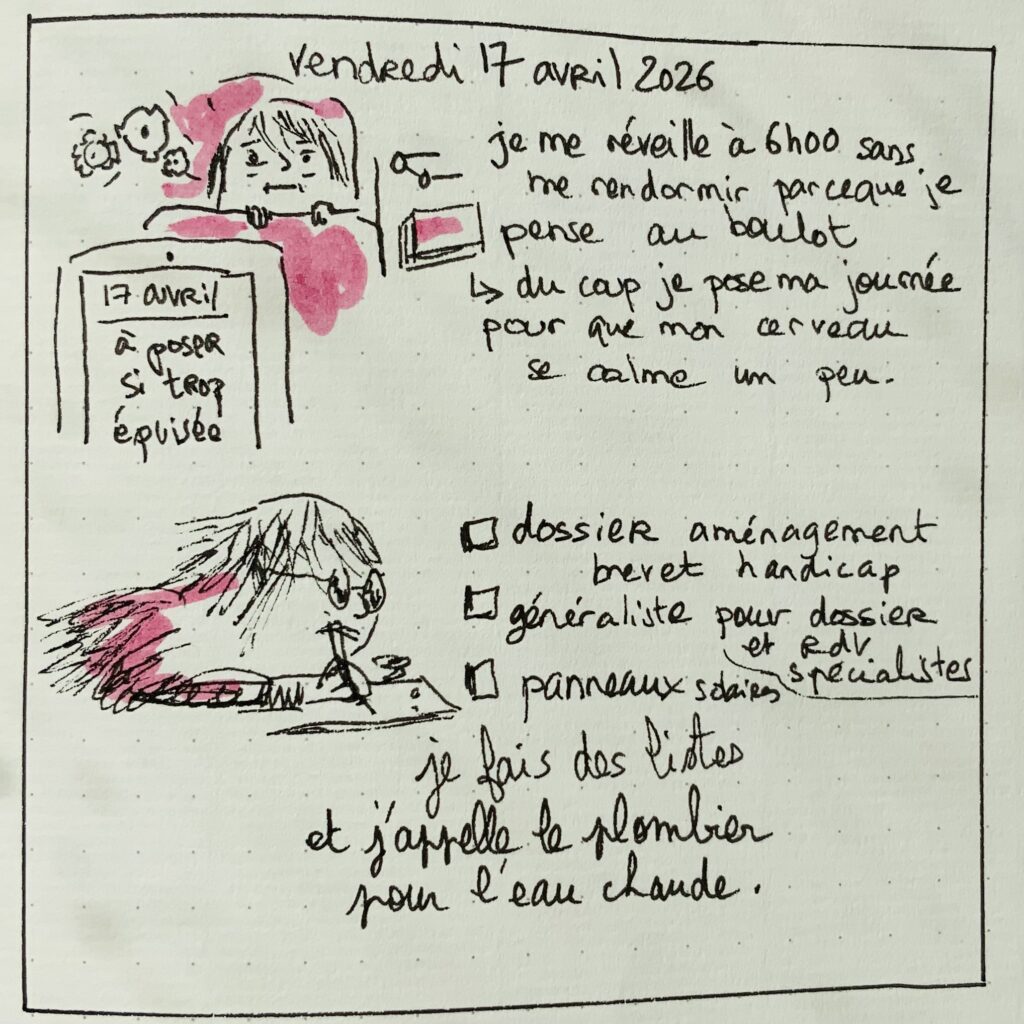 vendredi 17 avril 2026
je me réveille à 6h00 sans
me rendormir parceque je
pense au boulot
↳ du coup je pose ma journée
pour que mon cerveau
se calme un peu.
17 avril
à poser
si trop
épuisée
dossier aménagement
brevet handicap
généraliste pour dossier
et RDV
spécialistes
panneaux solaires
je fais des listes
et j'appelle le plombier
pour l'eau chaude.